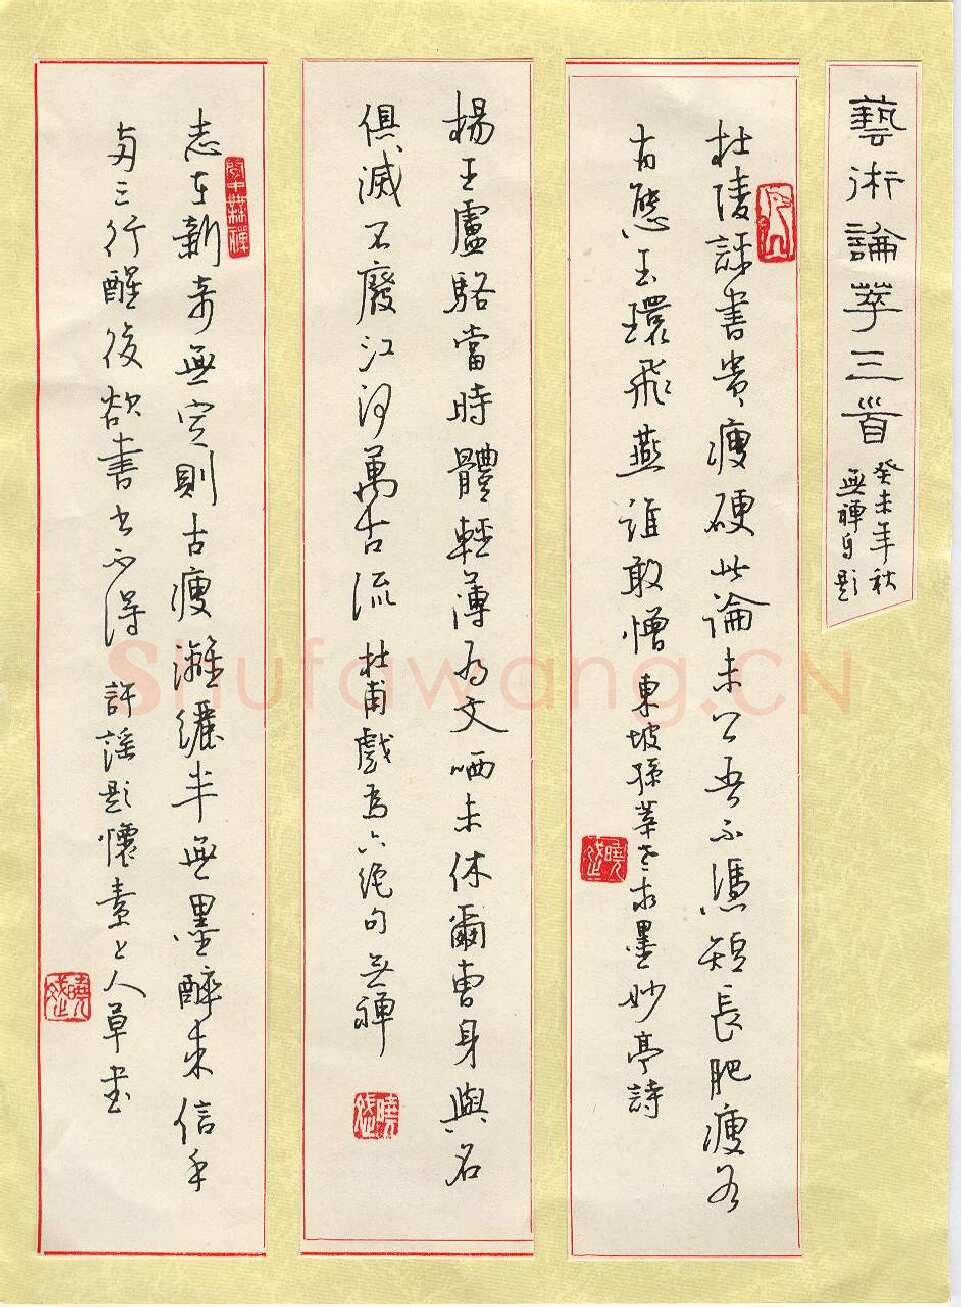 藝術論萃三首
癸未年秋
無禪自題
杜陵評書貴瘦硬此論未公吾不憑短長肥瘦各
有態玉環飛燕誰敢憎 東坡孫莘老求墨妙亭詩
楊王盧駱當時體輕薄為文哂未休爾曹身與名
俱滅不廢江河萬古流 杜甫戲為六絕句 无禪
志在新奇無定則古瘦漓纚半無墨醉來信手
兩三行醒後欲書書不得 許謠題懷素上人草書
Shufawang.CN